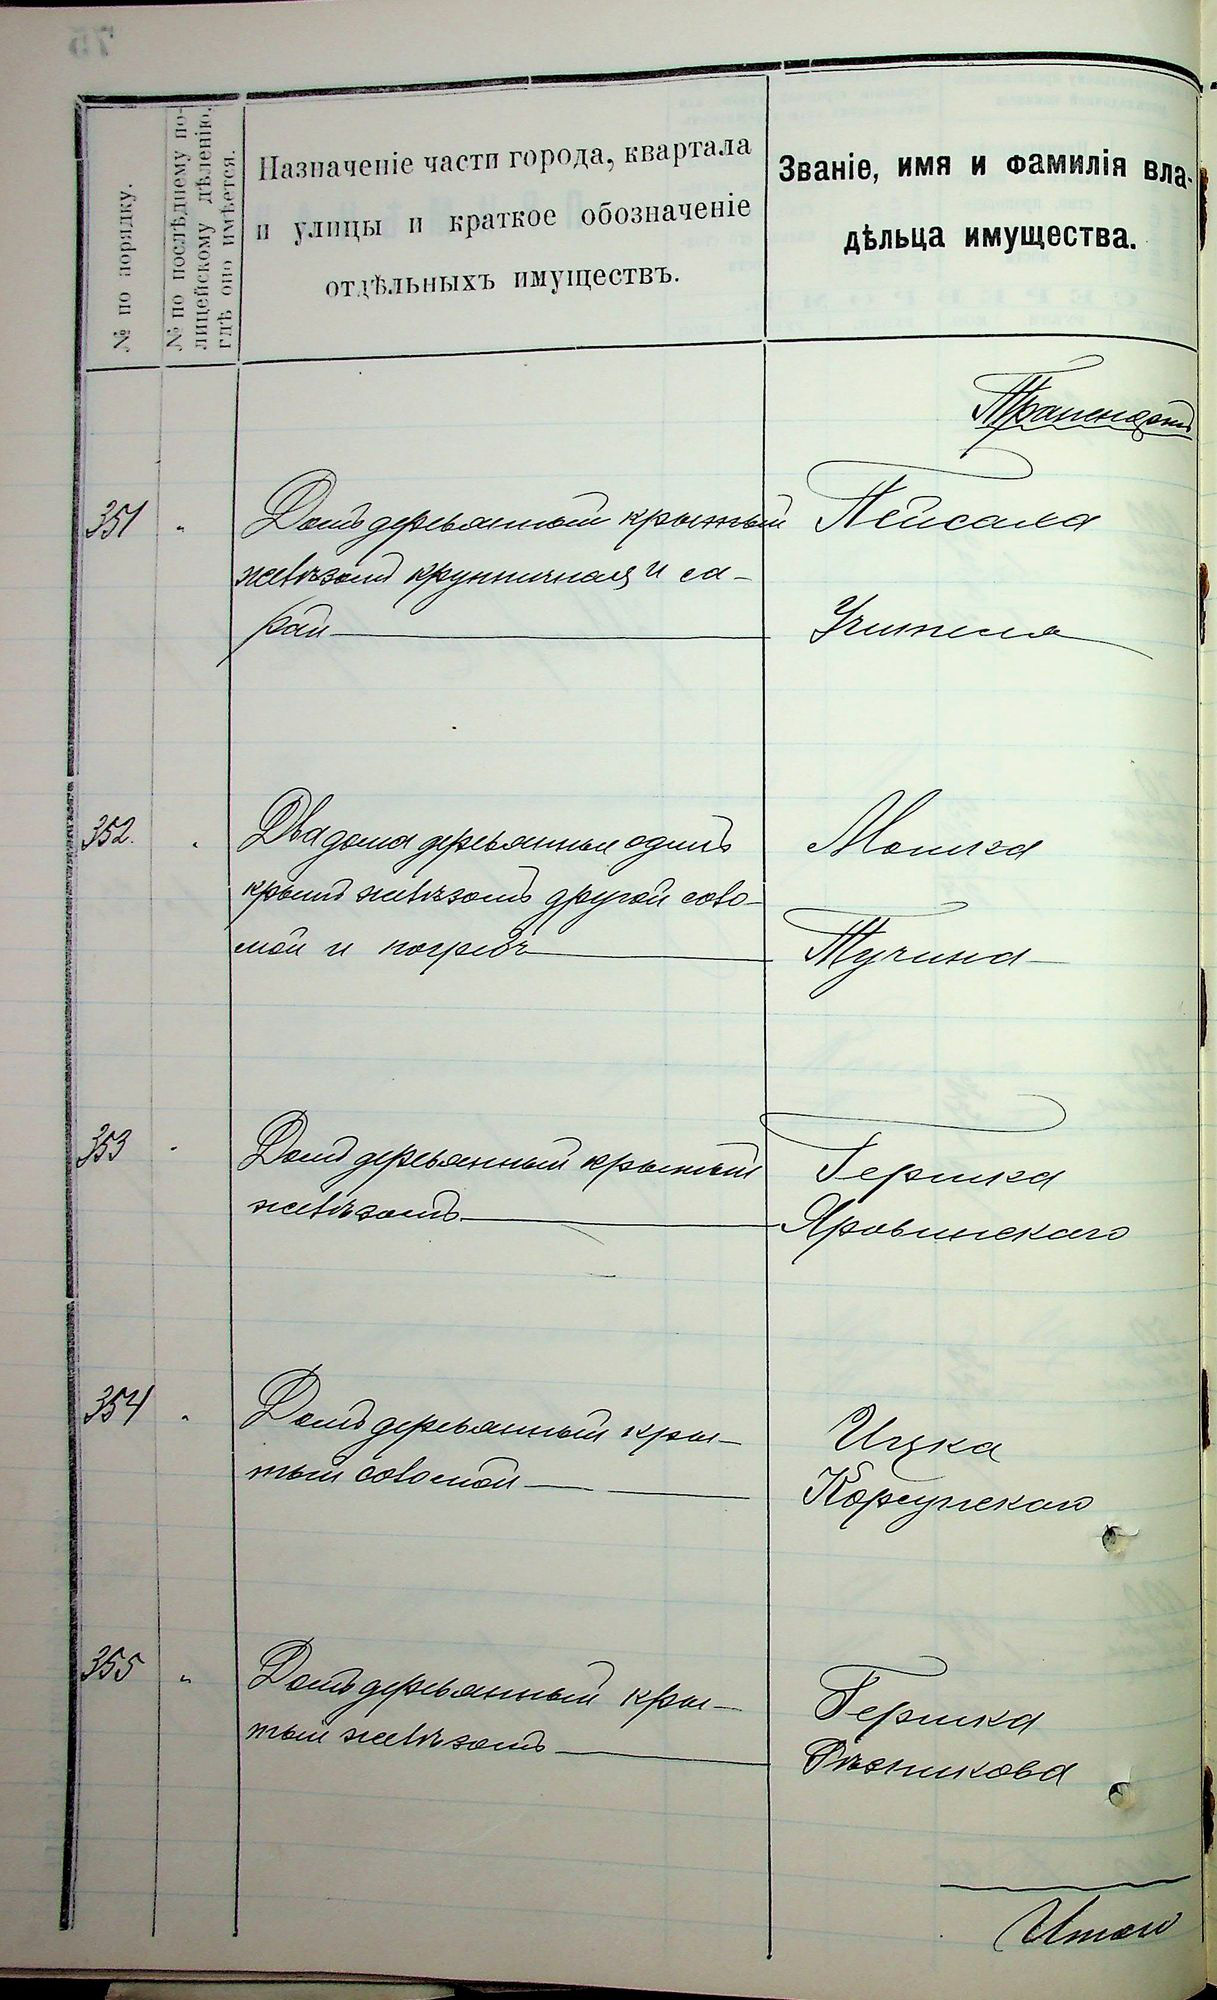 75
№ по порядку.
№ по послѣднему по-
лицейскому дѣленію,
гдѣ оно имѣется.
Назначеніе части города, квартала
и улицы и краткое обозначеніе
отдѣльныхъ имуществъ.
Званіе, имя и фамилія вла-
дѣльца имущества.
351 " Домъ деревянный крытый
желѣзомъ крупничная и са-
рай
Пейсаха
Учителя
352. " Два дома деревянные одинъ
крытъ желѣзомъ другой соло-
мой и погребъ
Мошка
Тучина
353 " Домъ деревянный крытый
желѣзомъ
Гершка
Яровинскаго
354 " Домъ деревянный кры-
тый соломой
Ицка
Корсунскаго
355 " Домъ деревянный кры-
тый желѣзомъ
Гершка
Рѣзникова
Итого